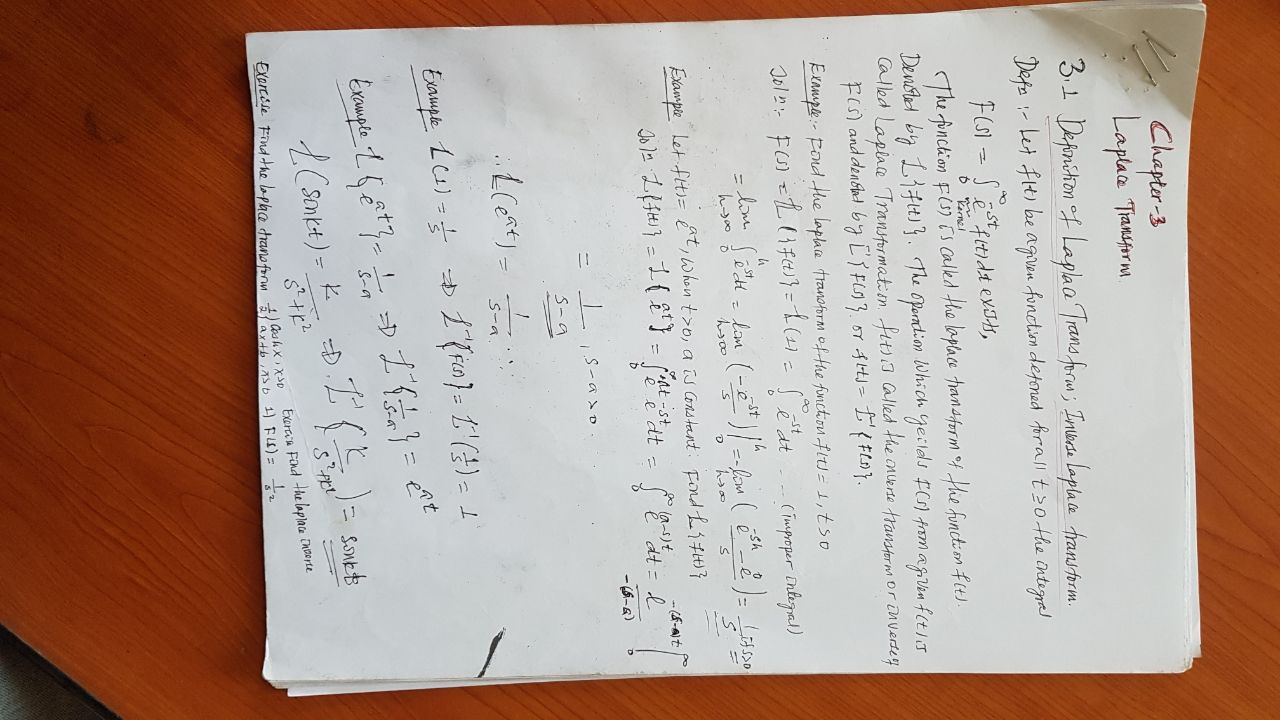 Chapter-3
Laplace Transform.
3.1 Definition of Laplace Transform; Inverse laplace transform.
Defn :- Let f(t) be a given function defined for all t ≥ 0 the integral
F(s) = ∫₀^∞ e^{-st} f(t) dt exists,
kernel
The function F(s) is called the laplace transform of the function f(t).
Denoted by L{f(t)}. The operation which yeilds F(s) from a given f(t) is
called Laplace Transformation. f(t) is called the inverse transform or inverse of
F(s) and denoted by L⁻¹{F(s)}. or f(t) = L⁻¹{F(s)}.
Example:- Find the laplace transform of the function f(t) = 1, t ≥ 0
Soln:- F(s) = L{f(t)} = L(1) = ∫₀^∞ e^{-st} dt --- (improper integral)
= lim_{h→∞} ∫₀^h e^{-st} dt = lim_{h→∞} (-e^{-st}/s)|₀^h = lim_{h→∞} (e^{-sh} - e^0 / s) = 1/s if s>0
Example Let f(t) = e^{at}, when t>0, a is constant. Find L{f(t)}
Soln L{f(t)} = L{e^{at}} = ∫₀^∞ e^{at} e^{-st} dt = ∫₀^∞ e^{(a-s)t} dt = e^{-(s-a)t} / -(s-a) |₀^∞
= 1/(s-a), s-a>0.
∴ L(e^{at}) = 1/(s-a) ∴
Example L(1) = 1/s ⇒ L⁻¹{F(s)} = L⁻¹(1/s) = 1
Example L{e^{at}} = 1/(s-a) ⇒ L⁻¹{1/(s-a)} = e^{at}
L(sinkt) = k/(s²+k²) ⇒ L⁻¹{k/(s²+k²)} = sinkt
Exercise Find the laplace inverse
Exercise Find the laplace transform 1) cosh x, x>0
2) ax+b, 1) F(s) = 1/s²